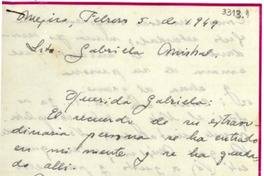 Mejico, Febrero 5 de 1949
3313.1
Srta. Gabriela Mistral.
Querida Gabriela:
El recuerdo de su extraor-
dinaria persona se ha entrado
en mi mente y se ha queda-
do allí.